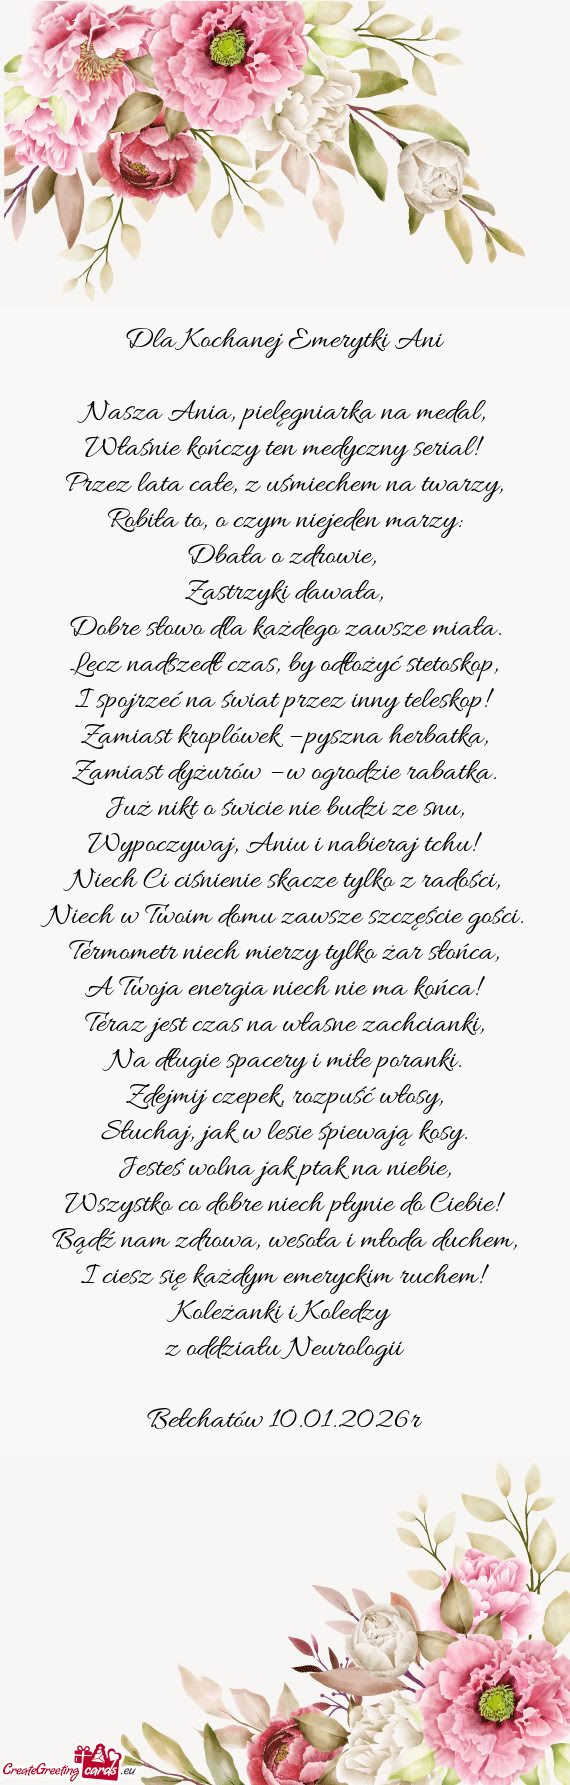 Dla Kochanej Emerytki Ani
Nasza Ania, pielęgniarka na medal,
Właśnie kończy ten medyczny serial!
Przez lata całe, z uśmiechem na twarzy,
Robiła to, o czym niejeden marzy:
Dbała o zdrowie,
Zastrzyki dawała,
Dobre słowo dla każdego zawsze miała.
Lecz nadszedł czas, by odłożyć stetoskop,
I spojrzeć na świat przez inny teleskop!
Zamiast kroplówek –pyszna herbatka,
Zamiast dyżurów –w ogrodzie rabatka.
Już nikt o świcie nie budzi ze snu,
Wypoczywaj, Aniu i nabieraj tchu!
Niech Ci ciśnienie skacze tylko z radości,
Niech w Twoim domu zawsze szczęście gości.
Termometr niech mierzy tylko żar słońca,
A Twoja energia niech nie ma końca!
Teraz jest czas na własne zachcianki,
Na długie spacery i miłe poranki.
Zdejmij czepek, rozpuść włosy,
Słuchaj, jak w lesie śpiewają kosy.
Jesteś wolna jak ptak na niebie,
Wszystko co dobre niech płynie do Ciebie!
Bądź nam zdrowa, wesoła i młoda duchem,
I ciesz się każdym emeryckim ruchem!
Koleżanki i Koledzy
z oddziału Neurologii
Bełchatów 10.01.2026r
CreateGreeting cards .eu